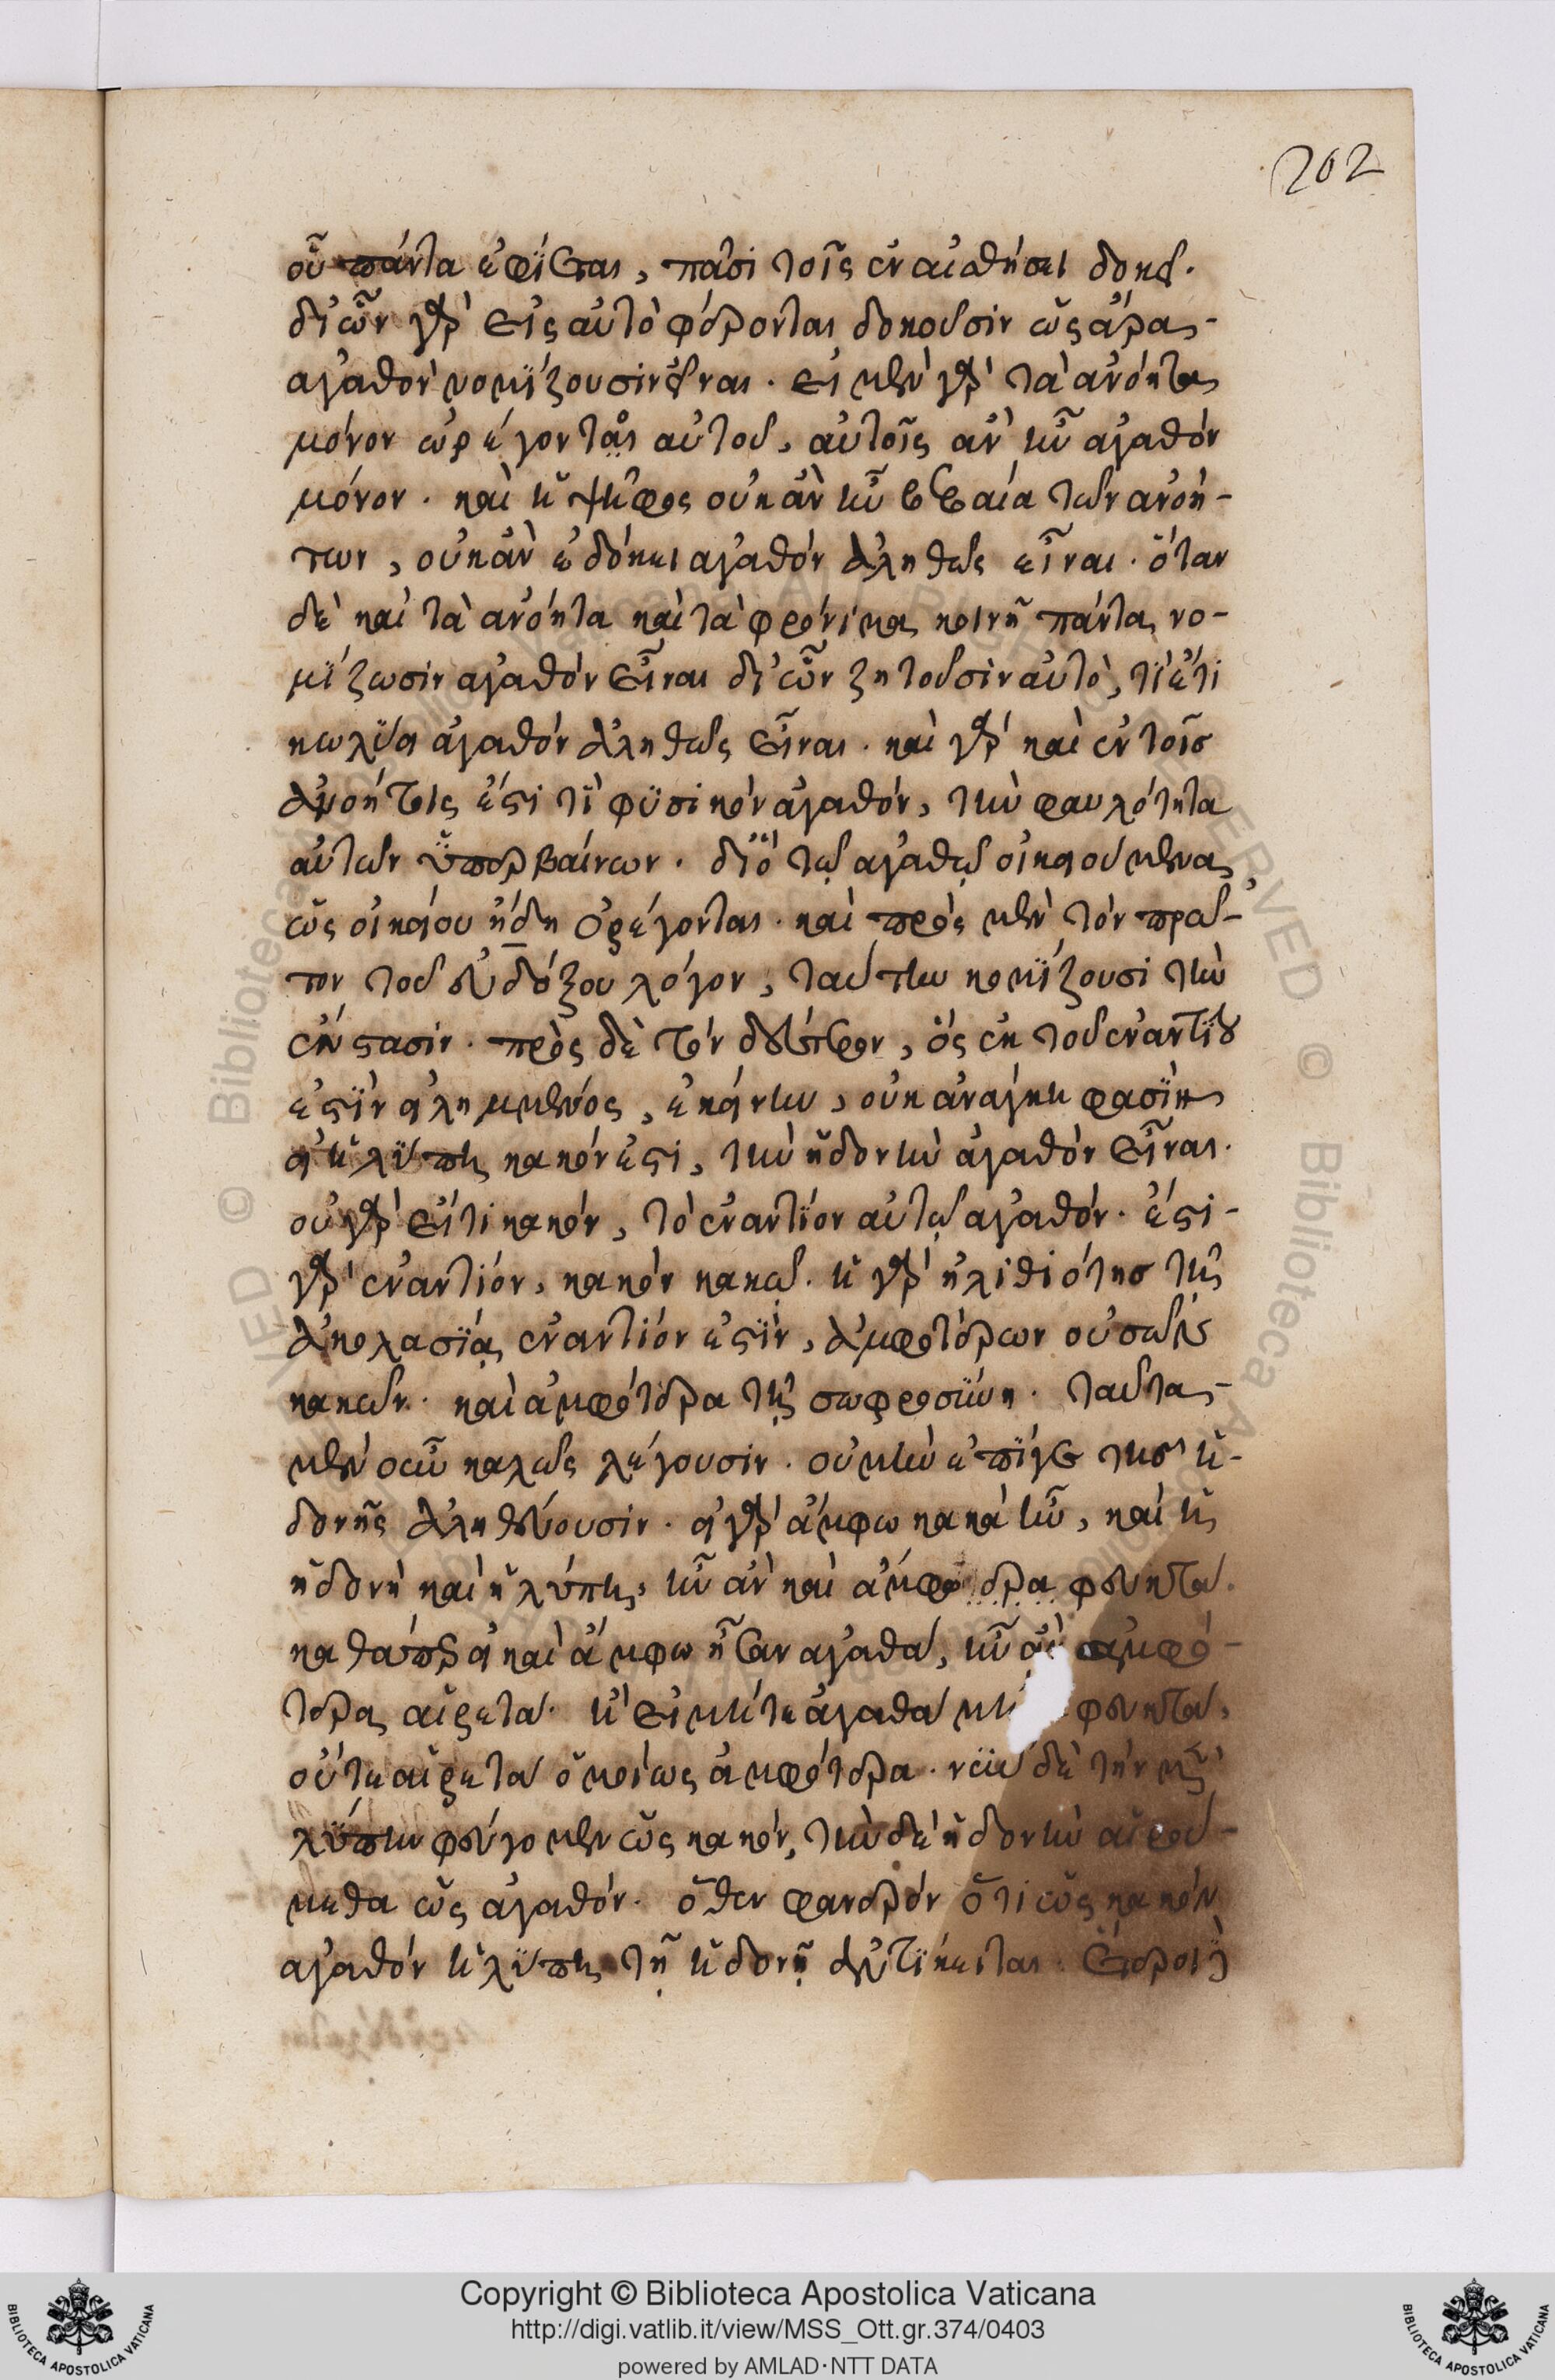 202
οὗ πάντα ἐφίεται, πᾶσι τοῖς ἐν αἰσθήσει δοκεῖ.
δι' ὧν γὰρ εἰς αὐτὸ φέρονται δοκοῦσιν ὡς ἄρα
ἀγαθὸν νομίζουσιν εἶναι. εἰ μὲν γὰρ τὰ ἀνόητα
μόνον ὠρέγονται αὐτοῦ, αὐτοῖς ἂν ἦν ἀγαθὸν
μόνον. καὶ ἡ ψῆφος οὐκ ἂν ἦν βεβαία τῶν ἀνοή-
των, οὐκ ἂν ἐδόκει ἀγαθὸν ἀληθῶς εἶναι. ὅταν
δὲ καὶ τὰ ἀνόητα καὶ τὰ φρόνιμα κοινῇ πάντα νο-
μίζωσιν ἀγαθὸν εἶναι δι' ὧν ζητοῦσιν αὐτὸ, τί ἔτι
κωλύει ἀγαθὸν ἀληθῶς εἶναι. καὶ γὰρ καὶ ἐν τοῖς
ἀνοήτοις ἐστί τι φυσικὸν ἀγαθόν, τὴν φαυλότητα
αὐτῶν ὑπερβαίνων. διὸ τῷ ἀγαθῷ οἰκιούμενα,
ὡς οἰκείου ἤδη ὀρέγονται. καὶ πρὸς μὲν τὸν πρῶ-
τον τοῦ εὐδόξου λόγον, ταύτην κομίζουσι τὴν
ἔνστασιν. πρὸς δὲ τὸν δεύτερον, ὃς ἐκ τοῦ ἐναντίου
ἐστὶν εἰλημμένος, ἐκείνην, οὐκ ἀνάγκη φασὶν
εἰ ἡ λύπη κακόν ἐστι, τὴν ἡδονὴν ἀγαθὸν εἶναι.
οὐ γὰρ εἴ τι κακόν, τὸ ἐναντίον αὐτῷ ἀγαθόν. ἔστι
γὰρ ἐναντίον, κακὸν κακῷ. ἡ γὰρ ἠλιθιότης τῇ
ἀκολασίᾳ ἐναντίον ἐστὶν, ἀμφοτέρων οὐσῶν
κακῶν. καὶ ἀμφότερα τῇ σωφροσύνῃ. ταῦτα
μὲν οὖν καλῶς λέγουσιν. οὐ μὴν ἐπί γε τῆς ἡ-
δονῆς ἀληθεύουσιν. εἰ γὰρ ἄμφω κακὰ ἦν, καὶ ἡ
ἡδονὴ καὶ ἡ λύπη, ἦν ἂν καὶ ἄμφω δρα φευκτά.
καθάπερ εἰ καὶ ἄμφω ἦσαν ἀγαθά, ἦν ἂν ἀμφό-
τερα αἱρετά. ἢ εἰ μήτε ἀγαθὰ μή φευκτά,
οὔτε αἱρετὰ ὁμοίως ἀμφότερα. νῦν δὲ τὴν μὲν
λύπην φεύγομεν ὡς κακόν, τὴν δὲ ἡδονὴν αἱρού-
μεθα ὡς ἀγαθόν. ὅθεν φανερὸν ὅτι ὡς κακὸν
ἀγαθὸν ἡ λύπη τῇ ἡδονῇ ἀντίκειται. ἕτεροι
Copyright © Biblioteca Apostolica Vaticana
http://digi.vatlib.it/view/MSS_Ott.gr.374/0403
powered by AMLAD·NTT DATA
BIBLIOTECA APOSTOLICA VATICANA
BIBLIOTECA APOSTOLICA VATICANA